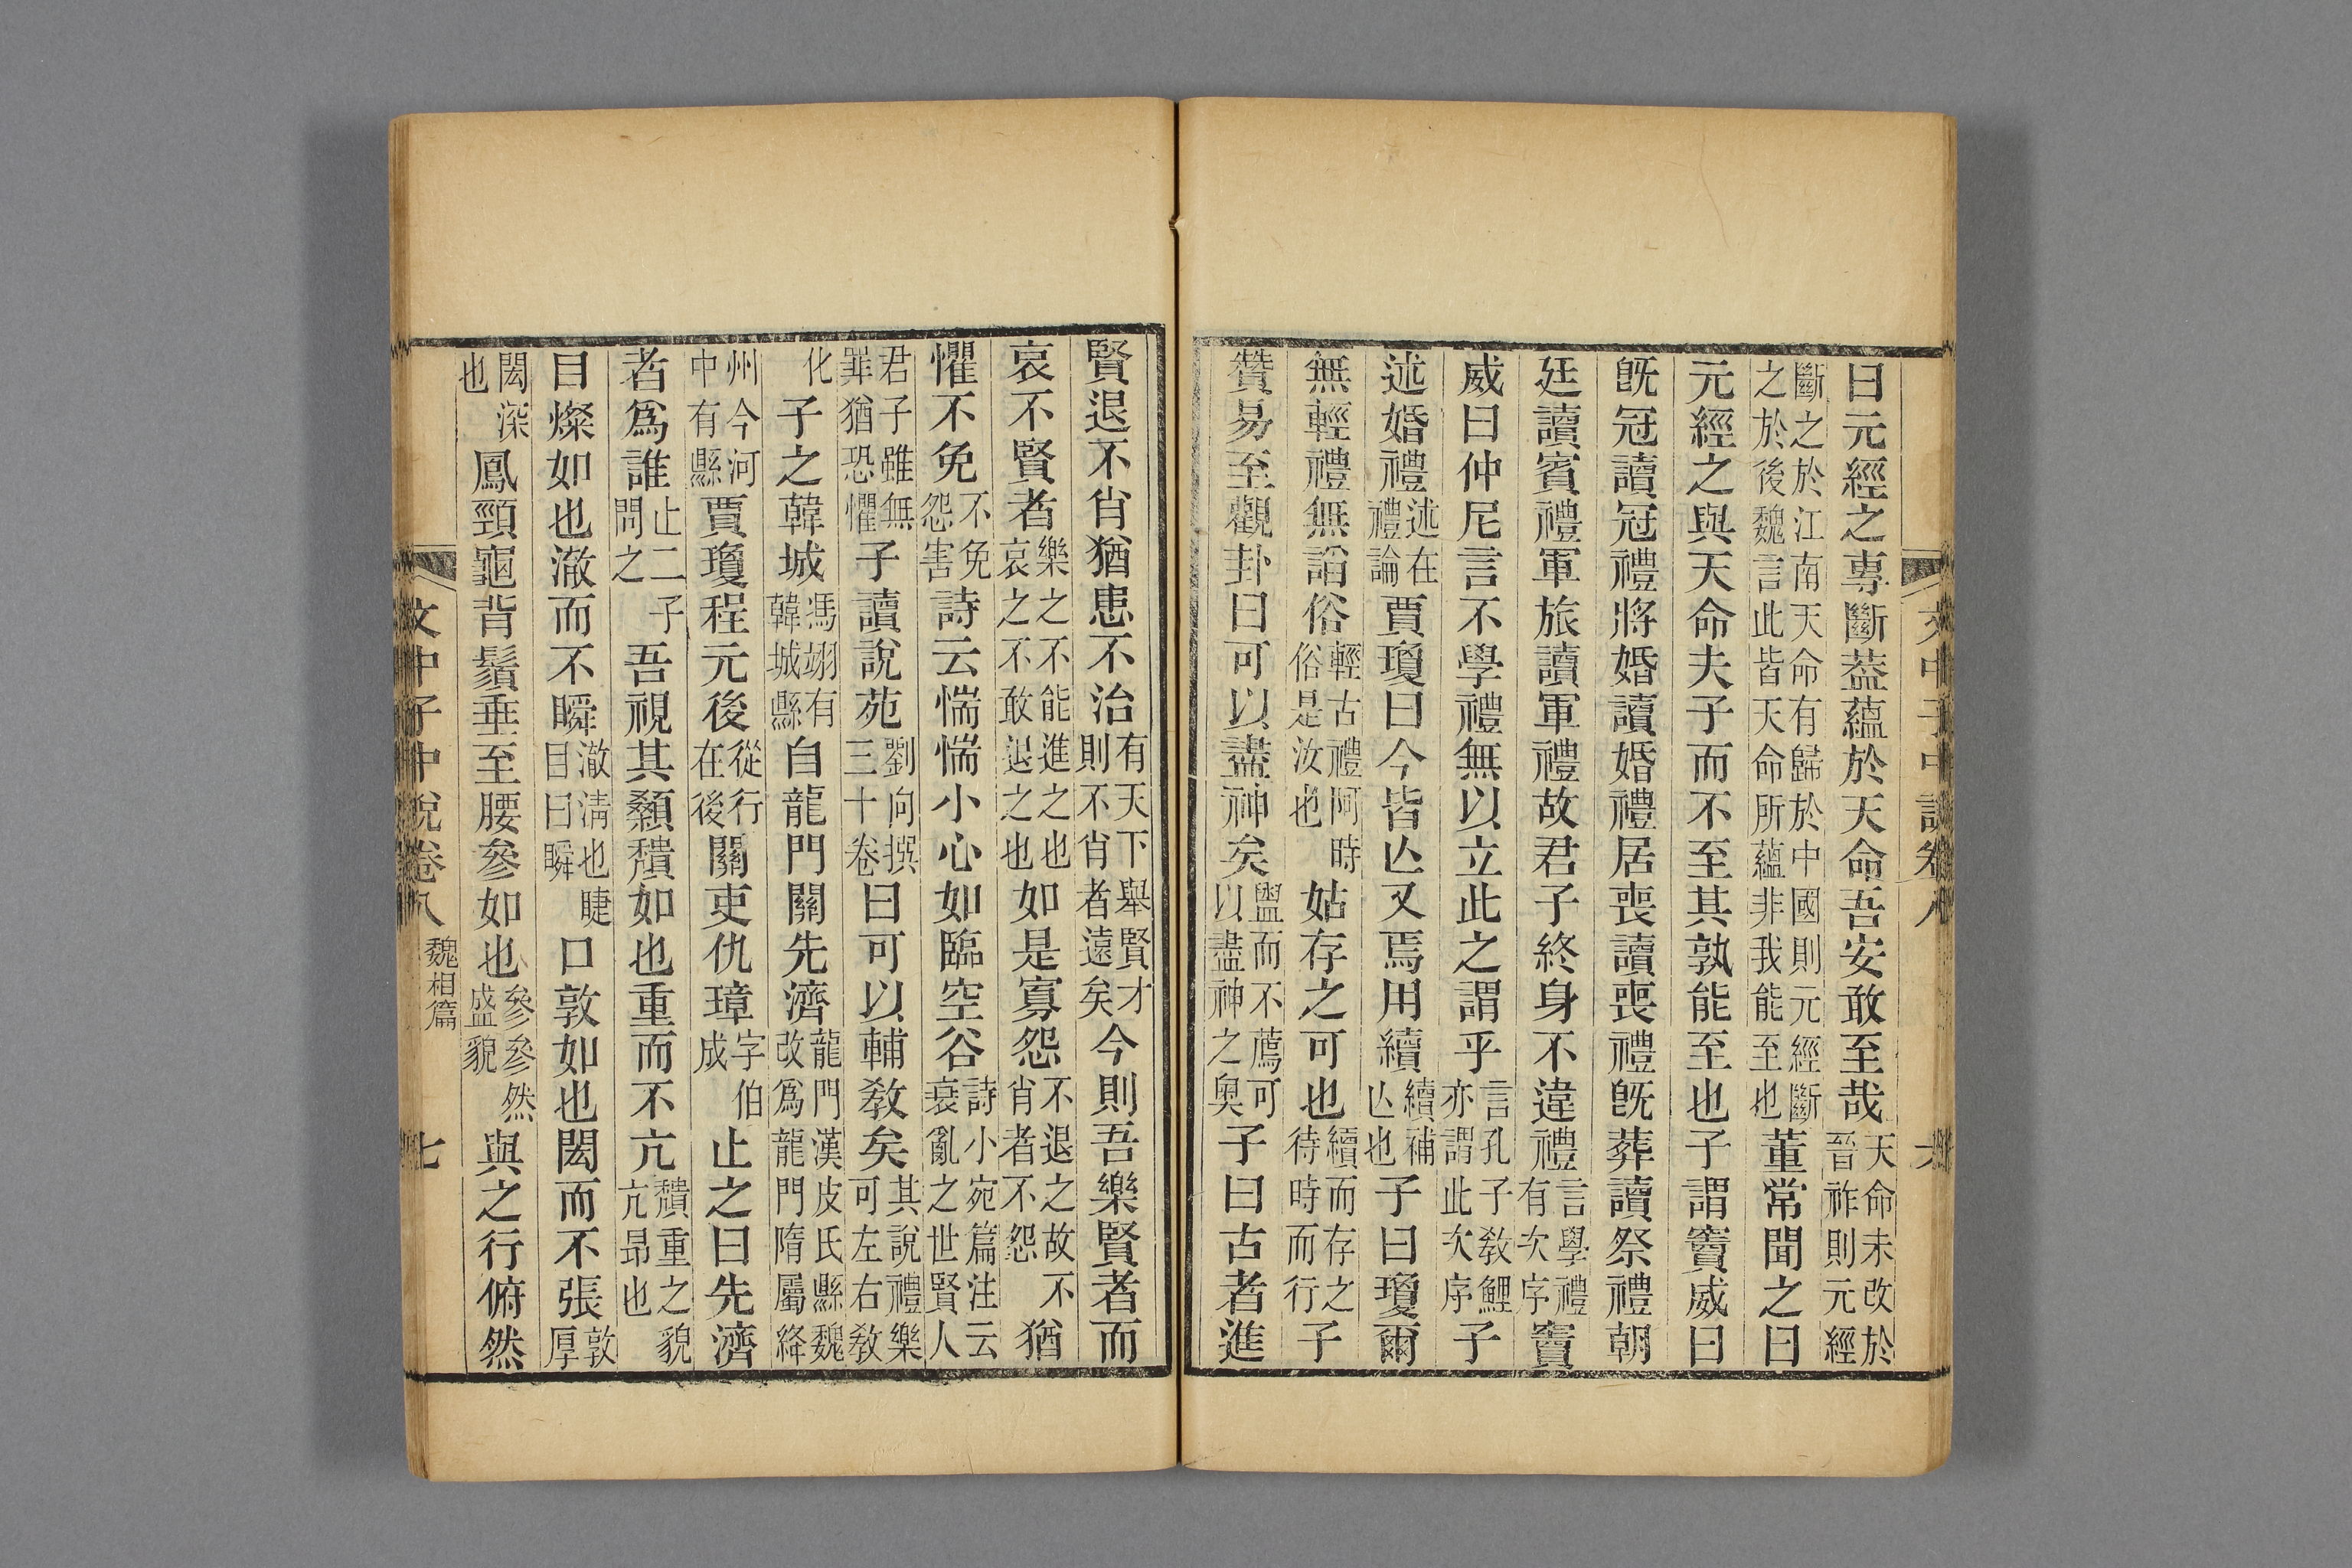 文中子中說卷八
六
曰元經之專斷葢蘊於天命吾安敢至哉天命未改於晉祚則元經
斷之於江南天命有歸於中國則元經斷之於後魏言此皆天命所蘊非我能至也董常聞之曰
元經之與天命夫子而不至其孰能至也子謂竇威曰
旣冠讀冠禮將婚讀婚禮居喪讀喪禮旣葬讀祭禮朝
廷讀賓禮軍旅讀軍禮故君子終身不違禮言學禮有次序竇
威曰仲尼言不學禮無以立此之謂乎言孔子教鯉亦謂此次序子
述婚禮述在禮論賈瓊曰今皆亾又焉用續續補亾也子曰瓊爾
無輕禮無諂俗輕古禮阿時俗是汝也姑存之可也續而存之待時而行子
贊易至觀卦曰可以盡神矣盥而不薦可以盡神之奧子曰古者進
賢退不肖猶患不治有天下舉賢才則不肖者遠矣今則吾樂賢者而
哀不賢者樂之不能進之也哀之不敢退之也如是寡怨不退之故不肖者不怨猶
懼不免不免怨害詩云惴惴小心如臨空谷詩小宛篇注云衰亂之世賢人
君子雖無罪猶恐懼子讀說苑劉向撰三十卷曰可以輔教矣其說禮樂可左右教
化子之韓城馮翊有韓城縣自龍門關先濟龍門漢皮氏縣魏改爲龍門隋屬絳
州今河中有縣賈瓊程元後從行在後關吏仇璋字伯成止之曰先濟
者爲誰止二子問之吾視其顙穨如也重而不亢穨重之貌亢昂也
目燦如也澈而不瞬澈淸也睫目曰瞬口敦如也閎而不張敦厚
閎深也鳳頸龜背鬚垂至腰參如也參參然盛貌與之行俯然
文中子中說卷八
魏相篇
七